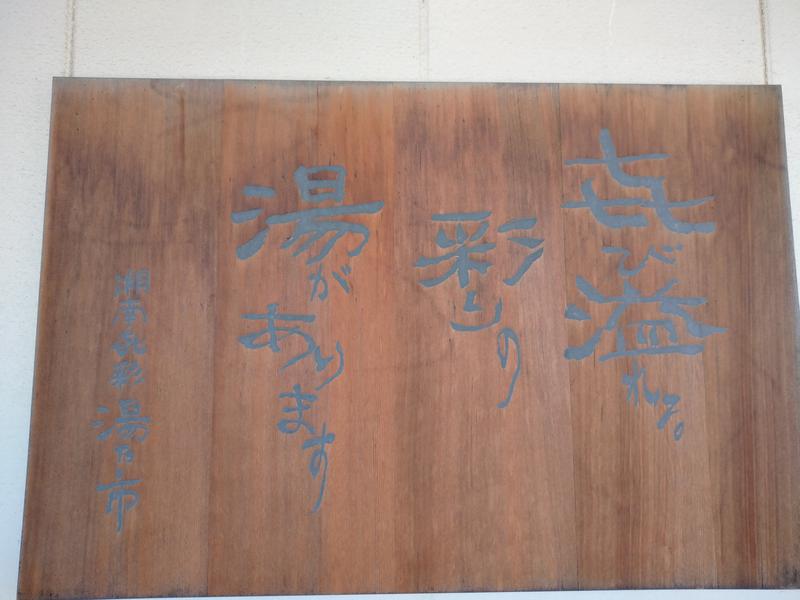 㐂び溢れる。
彩りの
湯が
あります
湘南 湯乃市